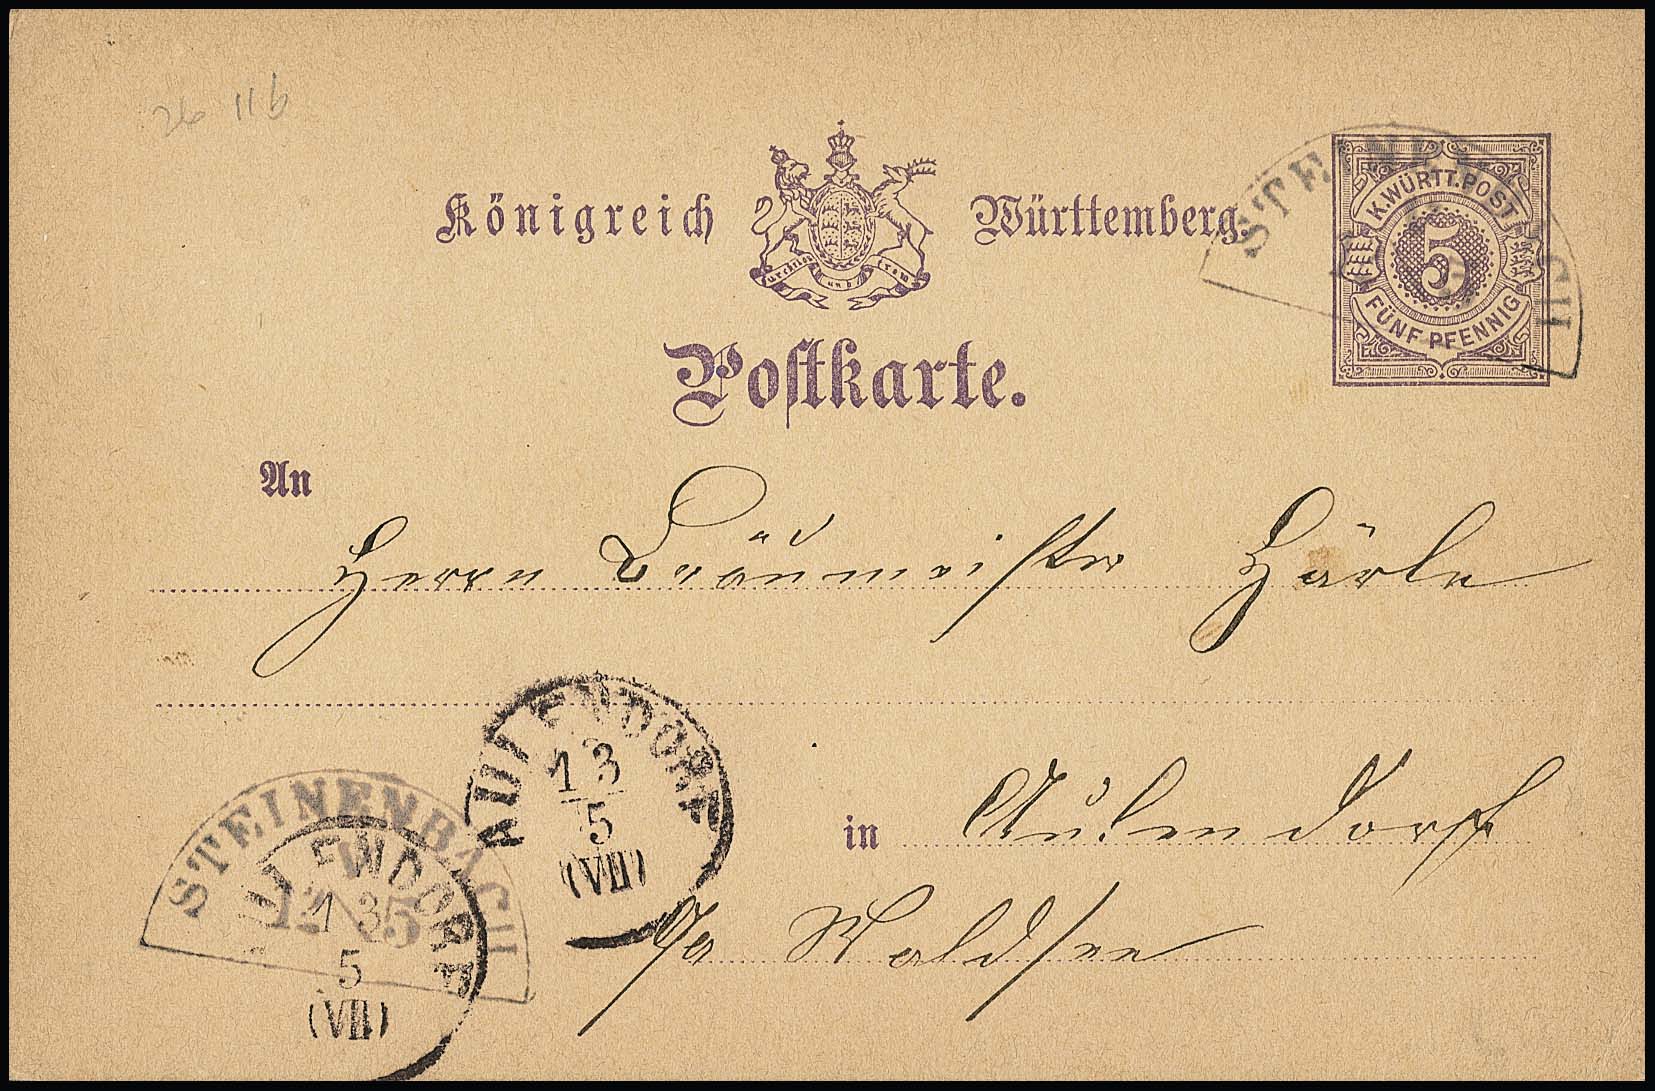 26 11b
Königreich Württemberg.
furchtlos und trew
K. WÜRTT. POST
5
FÜNF PFENNIG
STEINENBACH
Postkarte.
An
Herrn Bräumeister Härle
in Aulendorf
Waldsee
AULENDORF
13
5
(VII)
STEINENBACH
12 5
AULENDORF
13
5
(VII)